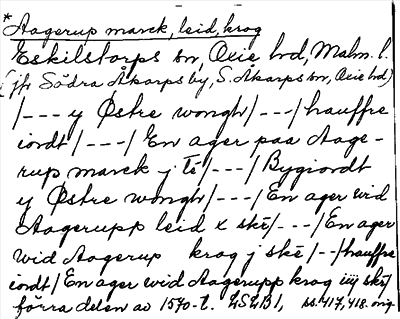 * Aagerup marck, leid, krog
Eskilstorps sn, Oxie hd, Malm. l.
(jfr Södra Åkarps by, S. Åkarps sn, Oxie hd)
/--- y Østre wongh/---/hauffre
iordt/---/En ager paa Aage-
rup marck j tē/---/Bygiordt
y Østre wongh/---/En ager wid
Aagerupp leid x skē/---/En ager
wid Aagerup krog j skē/--/hauffre
iordt/En ager wid Aagerupp krog iiij skē/
förra delen av 1570-t. LSLB1, ss. 417, 418. orig